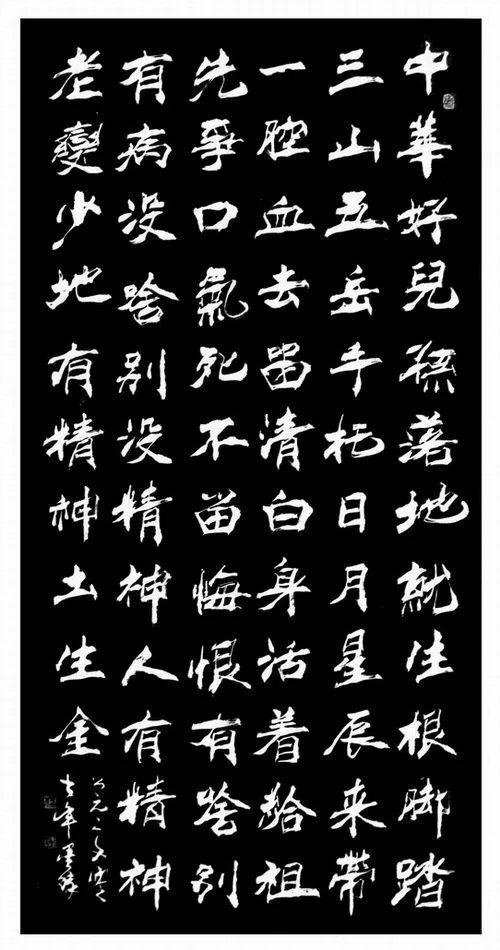 中華好兒孫落地就生根脚踏
三山五岳手托日月星辰来帶
一腔血去留清白身活着給祖
先爭口氣死不留悔恨有啥别
有病没啥别没精神人有精神
老變少地有精神土生金